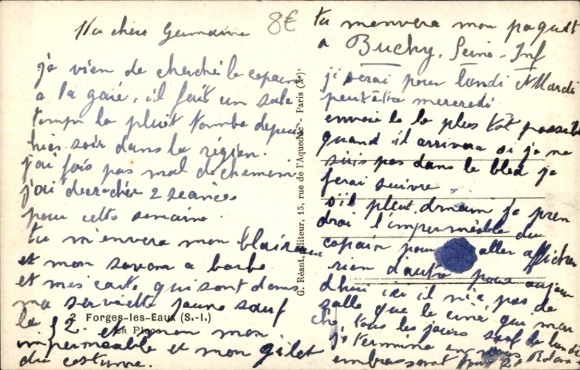 Ma chère Germaine
8€
je vien de cherché le copain
a la gare, il fait un sale
temps la pluit tombe depuis
hier soir dans la région.
j'ai fais pas mal de chemin
j'ai decrocher 2 seances
pour cette semaine.
tu m'envera mon blaireau
et mon savon a barbe
et mes carte qui sont dans
ma serviette jaune sauf
le 12. et mon
impermeable et mon gilet
du costume.
2 Forges-les-Eaux (S.-I.)
La Place
G. Réant, éditeur, 15, rue de l'Aqueduc - Paris (Xe)
tu m'envera mon paquet
a Buchy, Seine-Inf
je serai pour lundi et Mardi
peut être mercredi
envoie le le plus tôt possible
quand il arrivera si je ne
suis pas dans le bled je
ferai suivre
s'il pleut demain je pren
drai l'imperméable du
copain pour aller afficher
rien d'autre pour aujour
d'hui ici il n'a pas de
salle que le ciné qui
tous les jours sauf le lundi
je termine en
embrassant